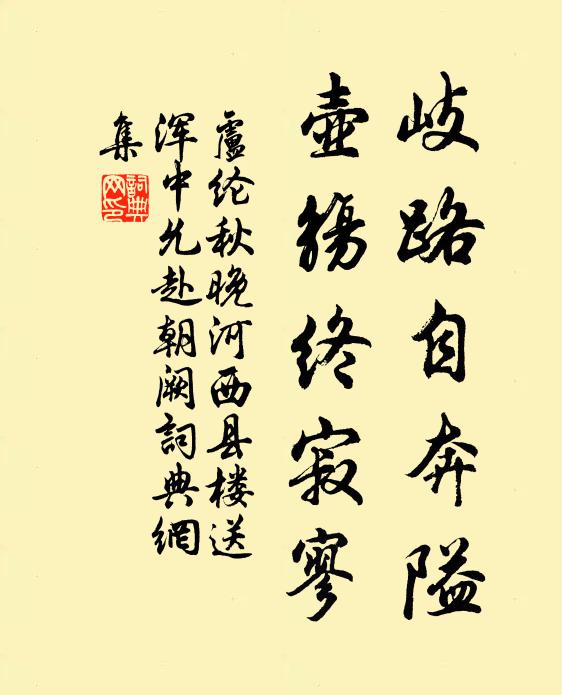 歧路自奔隘
壶觞终寂寥
盧纶秋晚河西县楼送
渾中允赴朝阙詞典網
集
詞典網印